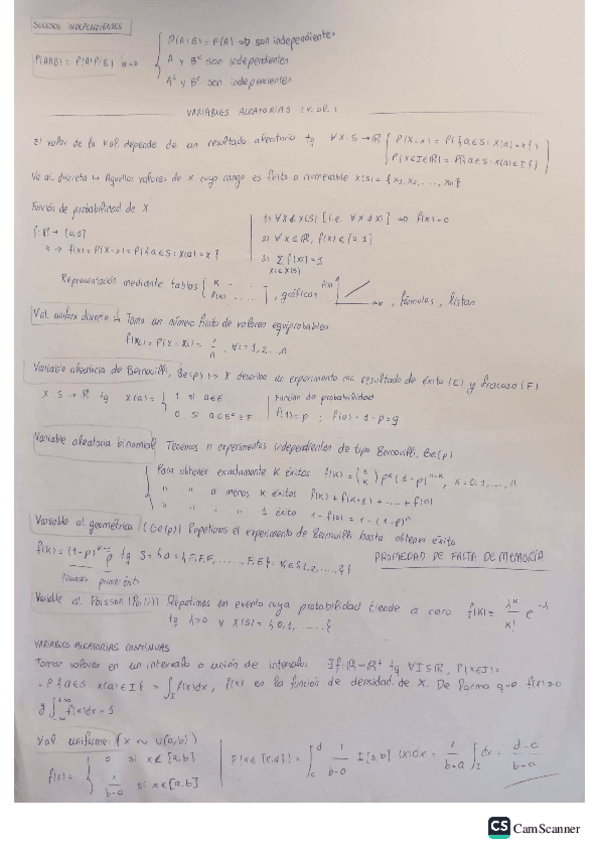 SUCESOS INDEPENDIENTES
P(A|B) = P(A) => son independientes
P(A∩B) = P(A)·P(B)
A y Bᶜ son independientes
Aᶜ y Bᶜ son independientes
VARIABLES ALEATORIAS (V.al.)
El valor de la v.al. depende de un resultado aleatorio tq ∀ X: S → ℝ { P(X=x) = P{a∈S: X(a)=x}
P(X∈I⊆ℝ) = P{a∈S: X(a)∈I}
Va al. discreta → Aquellos valores de X cuyo rango es finito o numerable X(S) = {x1, x2, ..., xn}
Función de probabilidad de X
1) ∀x∉X(S) [i.e. ∀x≠xi] => f(x)=0
f: ℝ → [0,1]
2) ∀x∈ℝ, f(x)∈[0,1]
x → f(x) = P(X=x) = P{a∈S: X(a)=x}
3) ∑ f(xi) = 1
xi∈X(S)
Representación mediante tablas, gráficas, fórmulas, listas
Val. uniforme discreta → Toma un número finito de valores equiprobables
f(xi) = P(X=xi) = 1/n, ∀i=1,2,...,n
Variable aleatoria de Bernouilli, Be(p) → X describe un experimento resultado de éxito (E) y fracaso (F)
X: S → ℝ tq X(a) = { 1 si a∈E
Función de probabilidad
0 si a∈Eᶜ=F
f(1)=p ; f(0)=1-p=q
Variable aleatoria binomial Tenemos n experimentos independientes de tipo Bernouilli, Be(p)
Para obtener exactamente K éxitos f(x) = (n x) pˣ (1-p)ⁿ⁻ˣ, x=0,1,...,n
" " a menos K éxitos f(K)+f(K+1)+...+f(n)
" " " 1 éxito 1-f(0) = 1-(1-p)ⁿ
Variable al. geométrica (Ge(p)) Repetimos el experimento de Bernouilli hasta obtener éxito
f(K) = (1-p)ᴷ⁻¹ p tq S={a={F,F,F,......,F,E}: K∈{1,2,...}}
PROPIEDAD DE FALTA DE MEMORIA
Fracasos primer éxito
Variable al. Poisson Repetimos un evento cuya probabilidad tiende a cero f(K) = λᴷ/K! e^-λ
tq λ>0 ∀ X(S)={0,1,.....}
VARIABLES ALEATORIAS CONTINUAS
Toman valores en un intervalo o unión de intervalos ∃f: ℝ→ℝ⁺ tq ∀I⊆ℝ, P(X∈I)=
=P{a∈S: X(a)∈I} = ∫_I f(x)dx, f(x) es la función de densidad de X. De forma que f(x)≥0
y ∫ f(x)dx=1
Val. uniforme: (X ~ U(a,b))
f(x) = { 0 si x∉[a,b]
P(X∈[c,d]) = ∫_c^d 1/(b-a) I[a,b](x)dx = 1/(b-a) ∫_I dx = (d-c)/(b-a)
1/(b-a) si x∈[a,b]
CS CamScanner